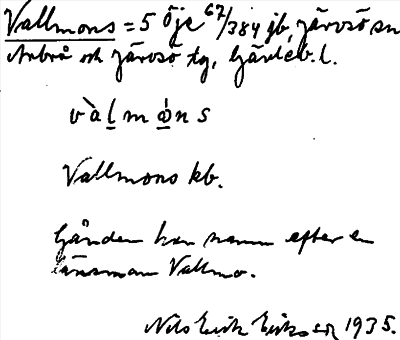 Vallmons = 5 Öje 67/384 jb, Järvsö sn
Arbrå och Järvsö tg, Gävleb. l.
vàlmòns
Vallmons kb.
Gården har namn efter en
länsman Vallmo.
Nils Erik Eriksson 1935.